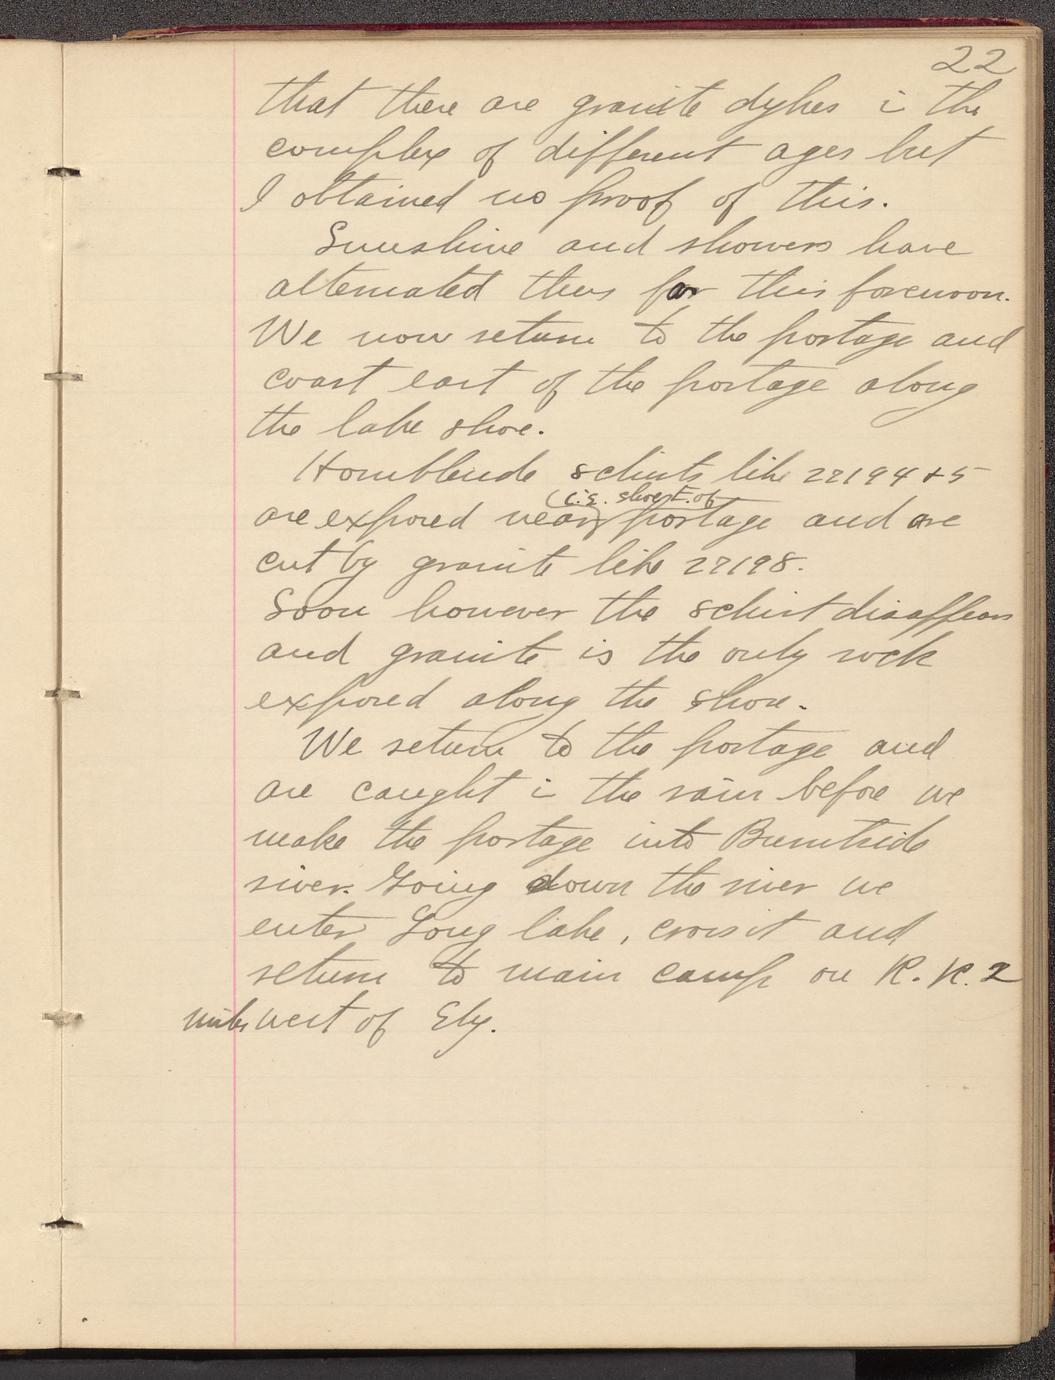 22
that there are granite dykes in the
complex of different ages but
I obtained no proof of this.
Sunshine and showers have
alternated thus far this forenoon.
We now return to the portage and
coast east of the portage along
the lake shore.
Hornblende schists like 22194 + 5
(i.e. short. of
are exposed near) portage and are
cut by granite like 22198.
Soon however the schist disappears
and granite is the only rock
exposed along the shore.
We return to the portage and
are caught in the rain before we
make the portage into Burntside
river. Going down the river we
enter Long lake, cross it and
return to main camp on R. R. 2
miles west of Ely.